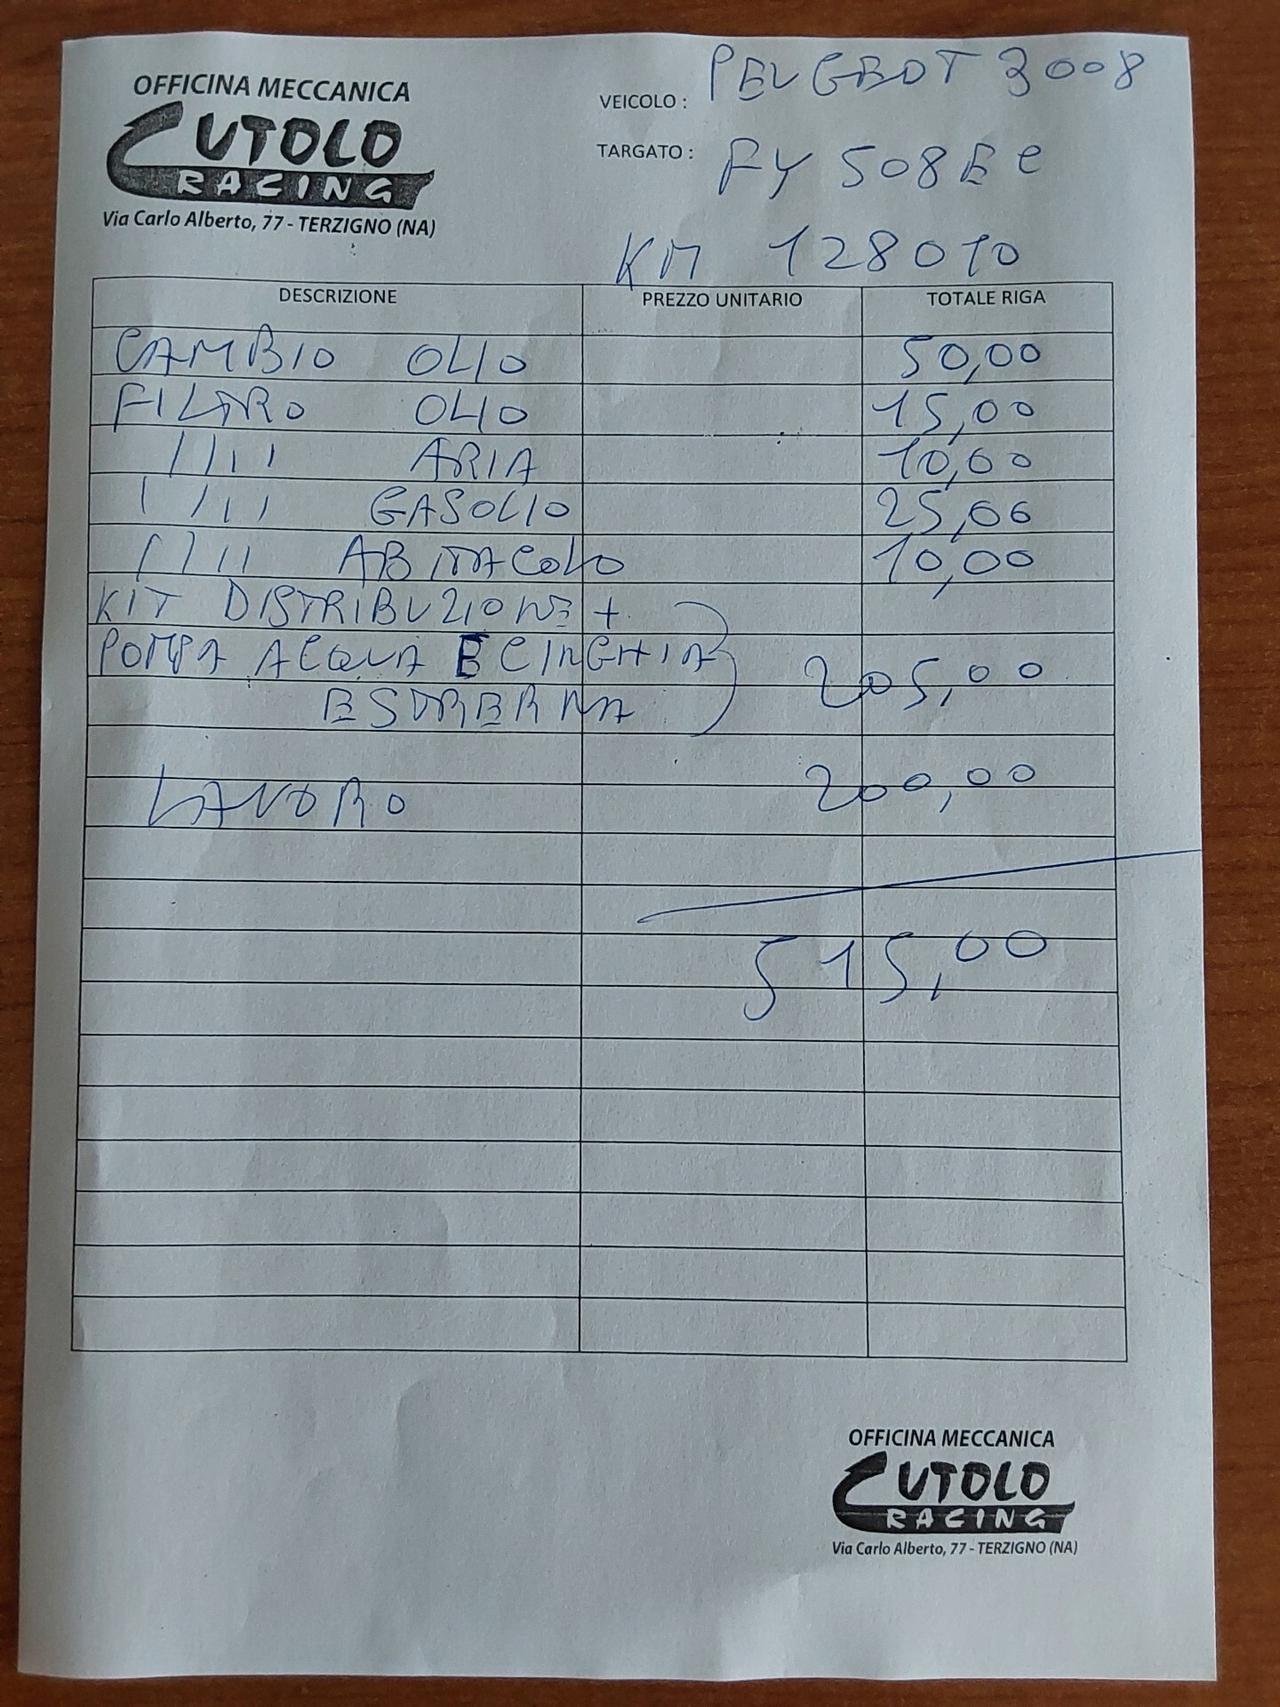 OFFICINA MECCANICA
CUTOLO
RACING
Via Carlo Alberto, 77 - TERZIGNO (NA)
VEICOLO : PEUGEOT 3008
TARGATO : FY 508EC
KM 128010
DESCRIZIONE PREZZO UNITARIO TOTALE RIGA
CAMBIO OLIO 50,00
FILTRO OLIO 15,00
//// ARIA 10,00
//// GASOLIO 25,00
//// ABITACOLO 10,00
KIT DISTRIBUZIONE +
POMPA ACQUA E CINGHIA 205,00
ESTERNA
LAVORO 200,00
515,00
OFFICINA MECCANICA
CUTOLO
RACING
Via Carlo Alberto, 77 - TERZIGNO (NA)